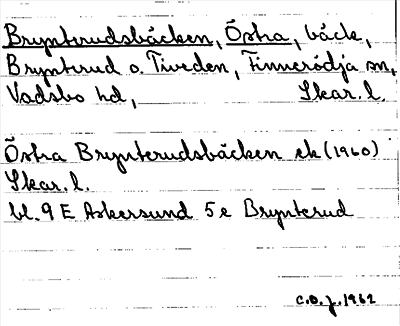 Brynterudsbäcken, Östra, bäck,
Brynterud o. Tiveden, Finnerödja sn,
Vadsbo hd, Skar. l.
Östra Brynterudsbäcken ek (1960)
Skar. l.
bl. 9 E Askersund 5 e Brynterud
C.O.J. 1962